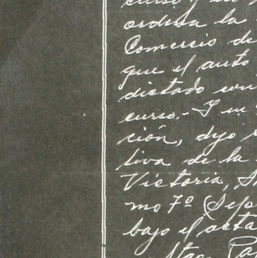 ordena la
Comercio de
que el auto
dictado con
curso.- I in
ción, dijo
tiva de la
Victoria, S
mo 7º (Sépt
bajo el acta